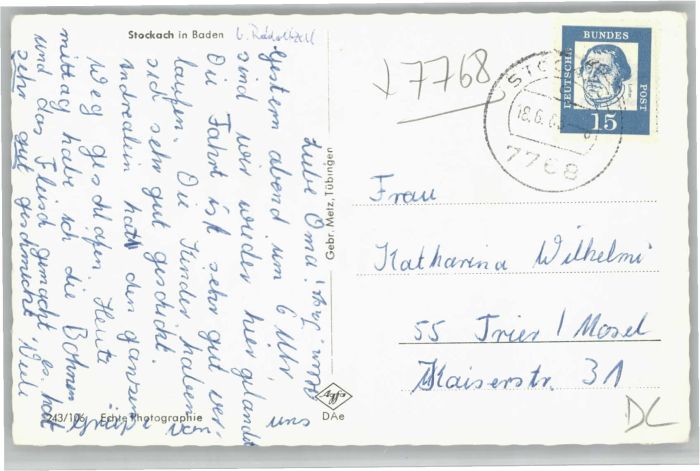 Stockach in Baden b. Radolfzell
Liebe Oma!
Gestern abend um 6 Uhr
sind wir wieder hier gelandet
Die Fahrt ist sehr gut ver-
laufen. Die Kinder haben
sich sehr gut geschickt.
Andrealin hat den ganzen
Weg geschlafen. Heute
mittag habe ich die Bohnen
und das Fleisch gemacht, es hat
sehr gut geschmeckt. Viele
Grüße von uns
Gebr. Metz, Tübingen
243/106 Echte Photographie
Agfa
DAe
7768
STOCKACH
18.6.6
7768
DEUTSCHE BUNDESPOST
15
Frau
Katharina Wilhelmi
55 Trier / Mosel
Kaiserstr. 31
DC